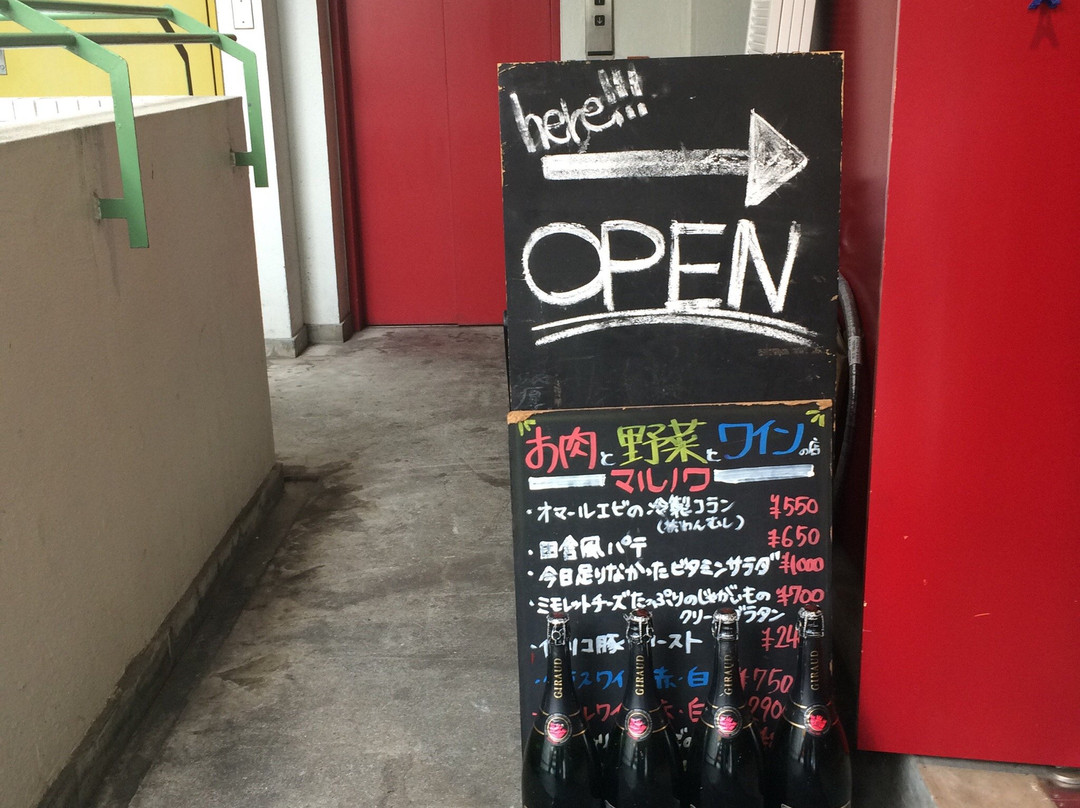 here!!!
OPEN
お肉と野菜とワインの店
マルノワ
・オマールエビの冷製コラン ¥550
(茶わんむし)
・田舎風パテ ¥650
・今日足りなかったビタミンサラダ ¥1000
・ミモレットチーズたっぷりのじゃがいもの ¥700
クリームグラタン
豚 ースト ¥24
スワイ 赤・白 ¥750
ルワイ 赤・白 290
GIRAUD
GIRAUD
GIRAUD
GIRAUD